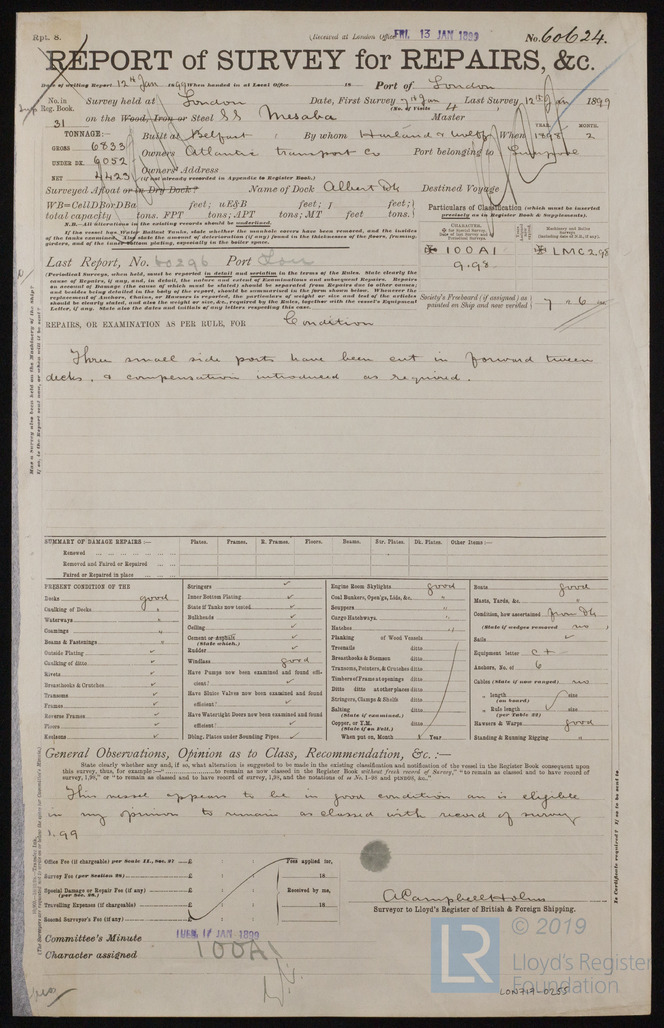 Rpt. 8.
(Received at London Office FRI. 13 JAN 1899
No. 60624.
REPORT of SURVEY for REPAIRS, &c.
Date of writing Report 12th Jan 1899 When handed in at Local Office 18 Port of London
No. in Reg. Book. Survey held at London Date, First Survey 7th Jan Last Survey 12th Jan 1899
(No. of Visits 4
31 on the Wood, Iron or Steel SS Mesaba Master
TONNAGE:— Built at Belfast By whom Harland & Wolff When 1898 2
YEAR. MONTH.
GROSS 6833
UNDER DK. 6052
NET 4423
Owners Atlantic Transport Co Port belonging to Liverpool
Owners' Address
(if not already recorded in Appendix to Register Book.)
Surveyed Afloat or in Dry Dock? Name of Dock Albert Dk Destined Voyage
WB=CellDBorDBa feet; uE&B feet; f feet;
total capacity tons. FPT tons; APT tons; MT feet tons.
N.B.—All alterations in the existing records should be underlined.
If the vessel has Water Ballast Tanks, state whether the manhole covers have been removed, and the insides of the tanks examined. Also state the amount of deterioration (if any) found in the thicknesses of the floors, framing, girders, and of the inner bottom plating, especially in the boiler space.
Particulars of Classification (which must be inserted precisely as in Register Book & Supplements).
CHARACTER.
100A1
9.98
LMC 2.98
Last Report, No. 60296 Port Lon
(Periodical Surveys, when held, must be reported in detail and seriatim in the terms of the Rules. State clearly the cause of Repairs, if any, and, in detail, the nature and extent of Examinations and subsequent Repairs. Repairs on account of Damage (the cause of which must be stated) should be separated from Repairs due to other causes; and besides being detailed in the body of the report, should be summarised in the form shown below. Whenever the replacement of Anchors, Chains, or Hawsers is reported, the particulars of weight or size and test of the articles should be clearly stated, and also the weight or size, &c., required by the Rules, together with the vessel's Equipment Letter, if any. State also the dates and initials of any letters respecting this case.
Society's Freeboard (if assigned) as painted on Ship and now verified 7 ft 6 ins
REPAIRS, OR EXAMINATION AS PER RULE, FOR Condition
Three small side ports have been cut in forward tween
decks, & compensation introduced as required.
SUMMARY OF DAMAGE REPAIRS:— Plates. Frames. R. Frames. Floors. Beams. Str. Plates. Dk. Plates. Other Items:—
Renewed
Removed and Faired or Repaired
Faired or Repaired in place
PRESENT CONDITION OF THE
Decks good
Caulking of Decks "
Waterways "
Coamings "
Beams & Fastenings "
Outside Plating ✓
Caulking of ditto ✓
Rivets ✓
Breasthooks & Crutches ✓
Transoms ✓
Frames ✓
Reverse Frames ✓
Floors ✓
Keelsons ✓
Stringers ✓
Inner Bottom Plating ✓
State if Tanks now tested ✓
Bulkheads ✓
Ceiling ✓
Cement or Asphalt ✓
(State which.)
Rudder ✓
Windlass good
Have Pumps now been examined and found efficient? ✓
Have Sluice Valves now been examined and found efficient? ✓
Have Watertight Doors now been examined and found efficient? ✓
Dblng. Plates under Sounding Pipes ✓
Engine Room Skylights good
Coal Bunkers, Open'gs, Lids, &c. "
Scuppers "
Cargo Hatchways "
Hatches "
Planking of Wood Vessels
Treenails ditto
Breasthooks & Stemson ditto
Transoms, Pointers, & Crutches ditto
Timbers of Frame at openings ditto
Ditto ditto at other places ditto
Stringers, Clamps & Shelfs ditto
Salting ditto
(State if examined.)
Copper, or Y.M. ditto
(State if on Felt.)
When put on, Month Year
Boats good
Masts, Yards, &c. "
Condition, how ascertained from dk
(State if wedges removed no )
Sails ✓
Equipment letter c+
Anchors, No. of 6
Cables (State if now ranged) no
" length size
(on board)
" Rule length size
(per Table 22)
Hawsers & Warps good
Standing & Running Rigging "
General Observations, Opinion as to Class, Recommendation, &c.:—
State clearly whether any, and if so, what alteration is suggested to be made in the existing classification and notification of the vessel in the Register Book consequent upon this survey, thus, for example:—
This vessel appears to be in good condition an is eligible
in my opinion to remain as classed with record of survey
1.99
Office Fee (if chargeable) per Scale II., Sec. 27 £ : : Fees applied for,
Survey Fee (per Section 28) £ : : 18
Special Damage or Repair Fee (if any) £ : : Received by me,
(per Sec. 28.)
Travelling Expenses (if chargeable) £ : : 18
Second Surveyor's Fee (if any) £ : :
A Campbell Holms
Surveyor to Lloyd's Register of British & Foreign Shipping.
Committee's Minute TUES. 17 JAN 1899
Character assigned 100A1
© 2019
LR
Lloyd's Register
Foundation
LON717-0255